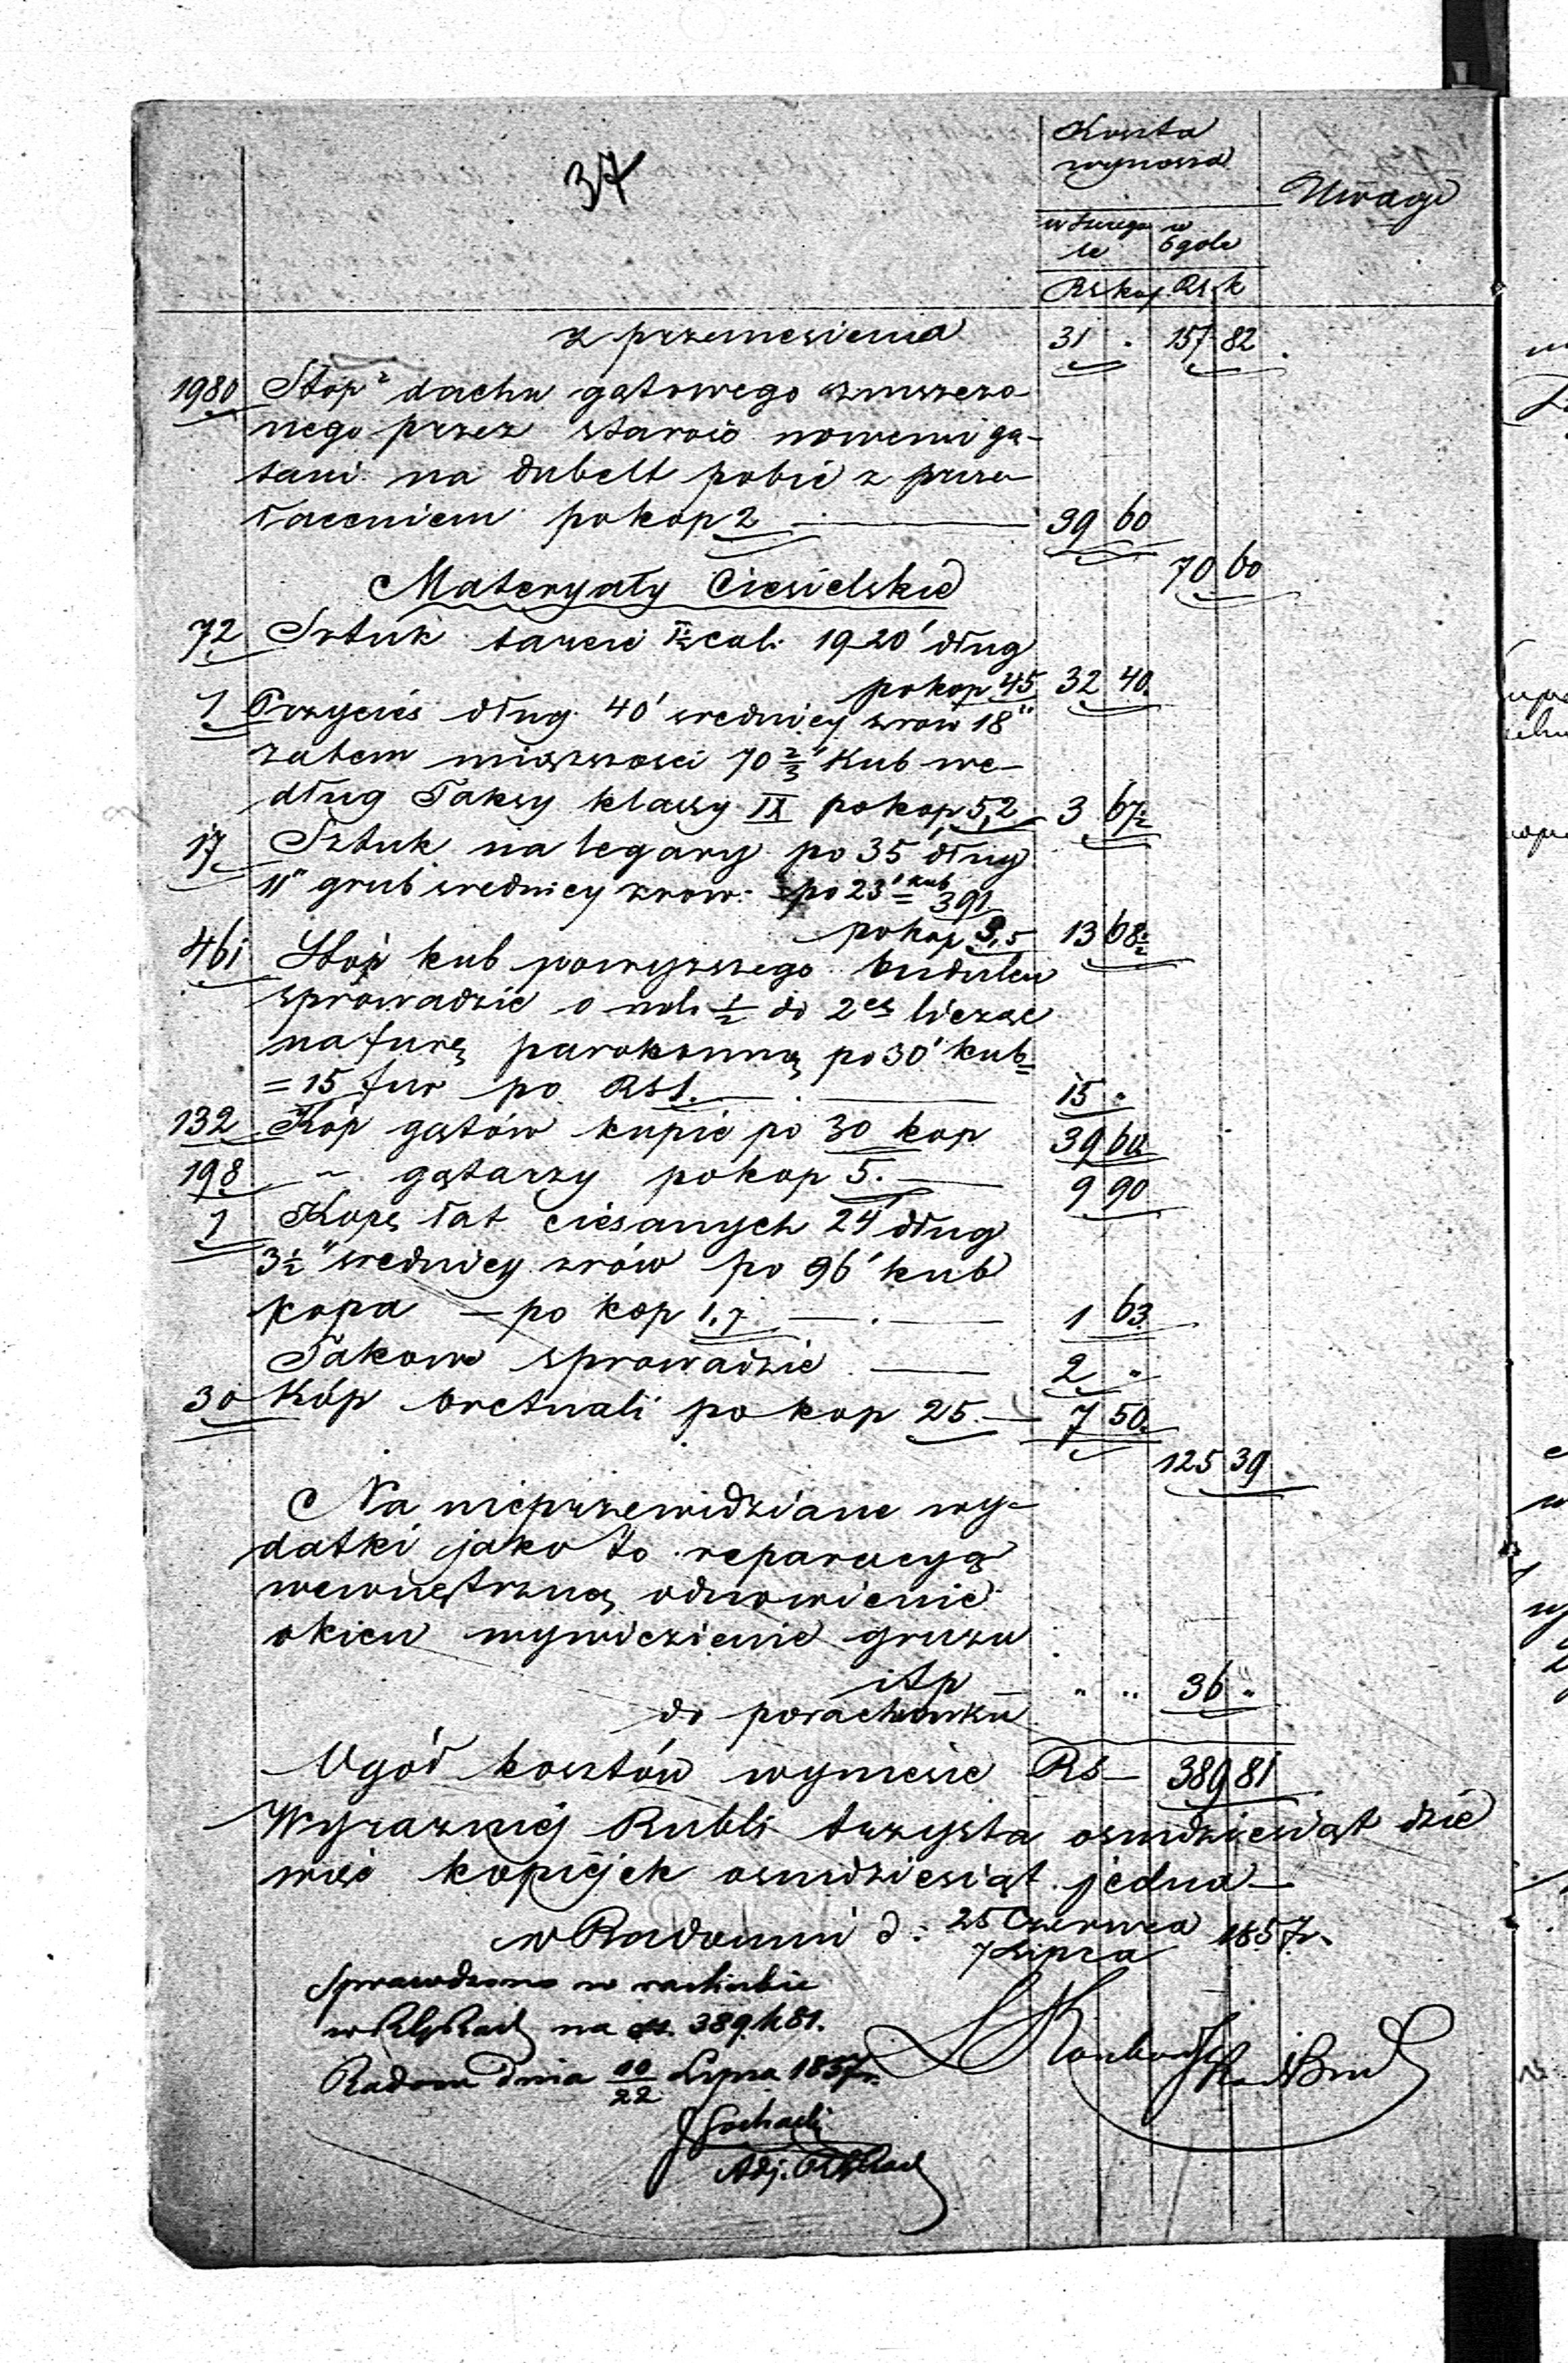 37
Koszta
wynoszą
Uwagi
w szczegó
le
w
ógole
Rs kop. Rs k
z przeniesienia 31 " 157 82
1980 Stop² dachu gątowego zniszczo-
nego przez starość nowemi gą-
tami na dubelt pobić z przy-
łaceniem po kop 2 39 60
70 60
Materyały Ciesielskie
72 Sztuk tarcic 1½ cali 19-20' dług
po kop 45 32 40
1 Przycieś dług. 40' srednicy zrow 18"
zatem miąszosci 70⅔' Kub we-
dług Taksy klassy IX po kop 5,2 3 67½
17 Sztuk na legary po 35' długi
11" grub srednicy zrow: po 23' kub = 391
po kop 3,5 13 68½
461 Stóp kub powyzszego budulcu
sprowadzić o mil ½ do 2ch licząc
na furę parokonną po 30' kub
= 15 fur po RS 1. 15 "
132 Kóp gątów kupić po 30 kop 39 60
198 " gątarzy po kop 5. 9 90
1 Kopę łat ciesanych 24' dług
3½" srednicy zrów po 96' kub
kopa – po kop 1,7 1 63
Takowe sprowadzić 2 "
30 Kóp bretnali po kop 25. 7 50
125 39
Na nieprzewidziane wy-
datki jako to reparacyą
wewnętrzną odnowienie
okien wywiezienie gruzu
itp " " 36 "
do porachunku
Ogół kosztów wyniesie Rs 389 81
Wyrazniej Rubli trzysta osmdziesiąt dzie
więć kopiejek osmdziesiąt jedna
w Radomiu d: 25 Czerwca 1857 r.
7 Lipca
Sprawdzono w rachubie
na 389 k 81.
Radom dnia 10/22 Lipca 1857 r.